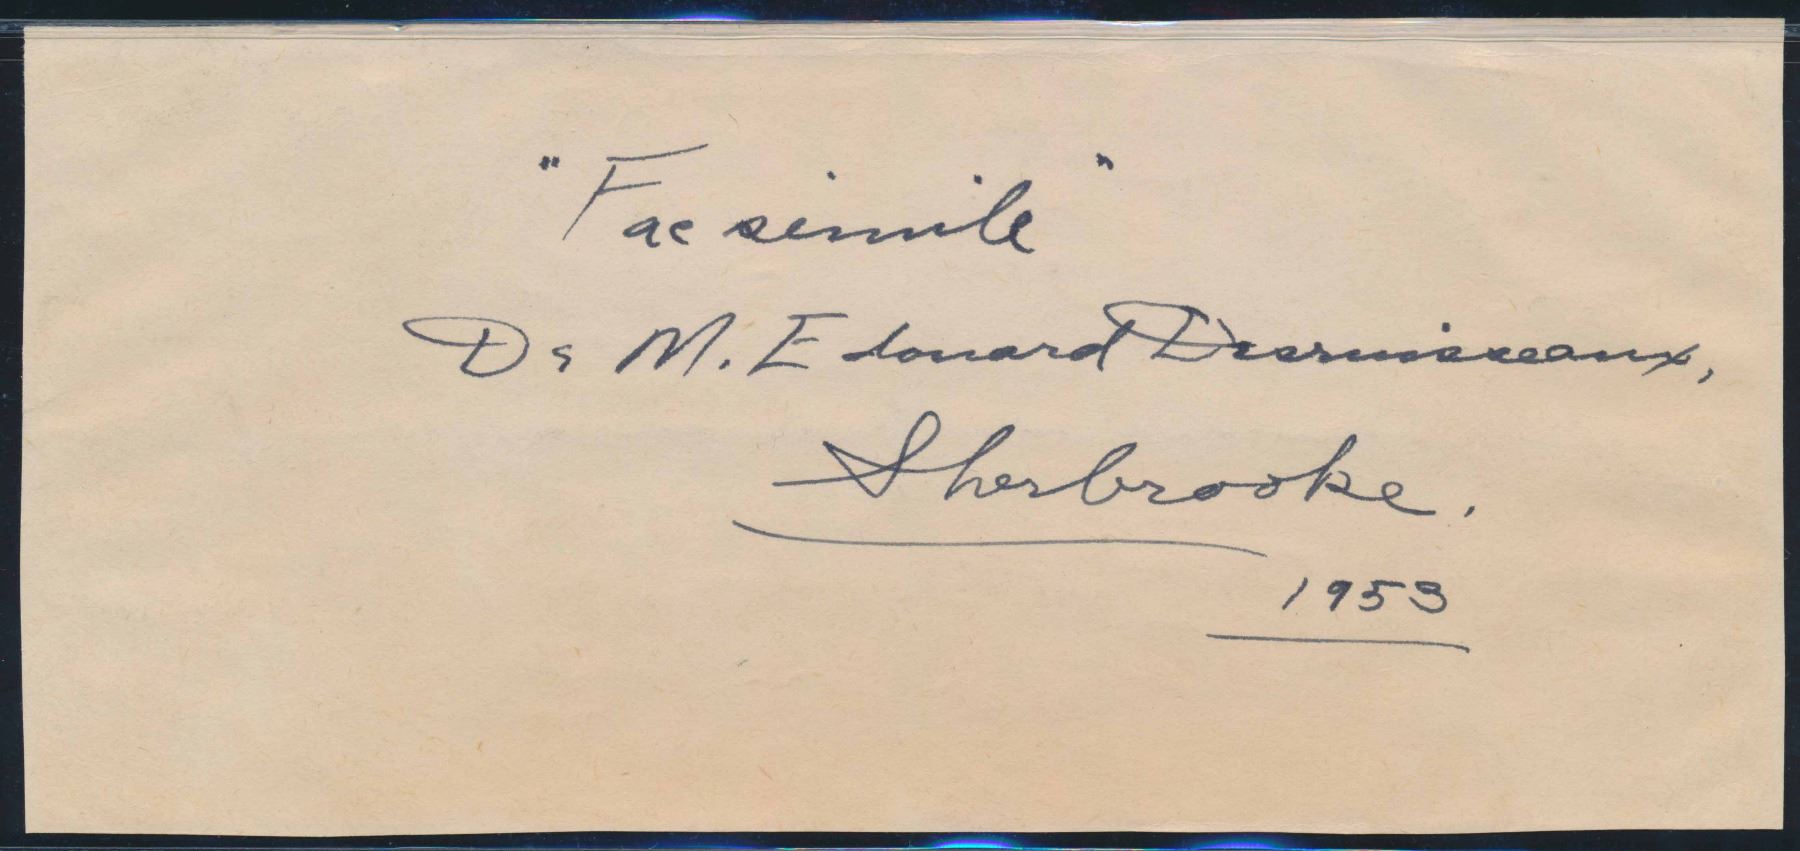 "Facsimile"
Dr M. Edouard Desruisseaux,
Sherbrooke.
1953